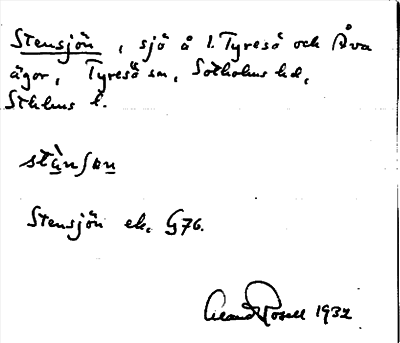 Stensjön, sjö å l. Tyresö och Åva
ägor, Tyresö sn, Sotholms hd,
Sthlms l.
stä̀nʃön
Stensjön ek. G76.
Rosell 1932